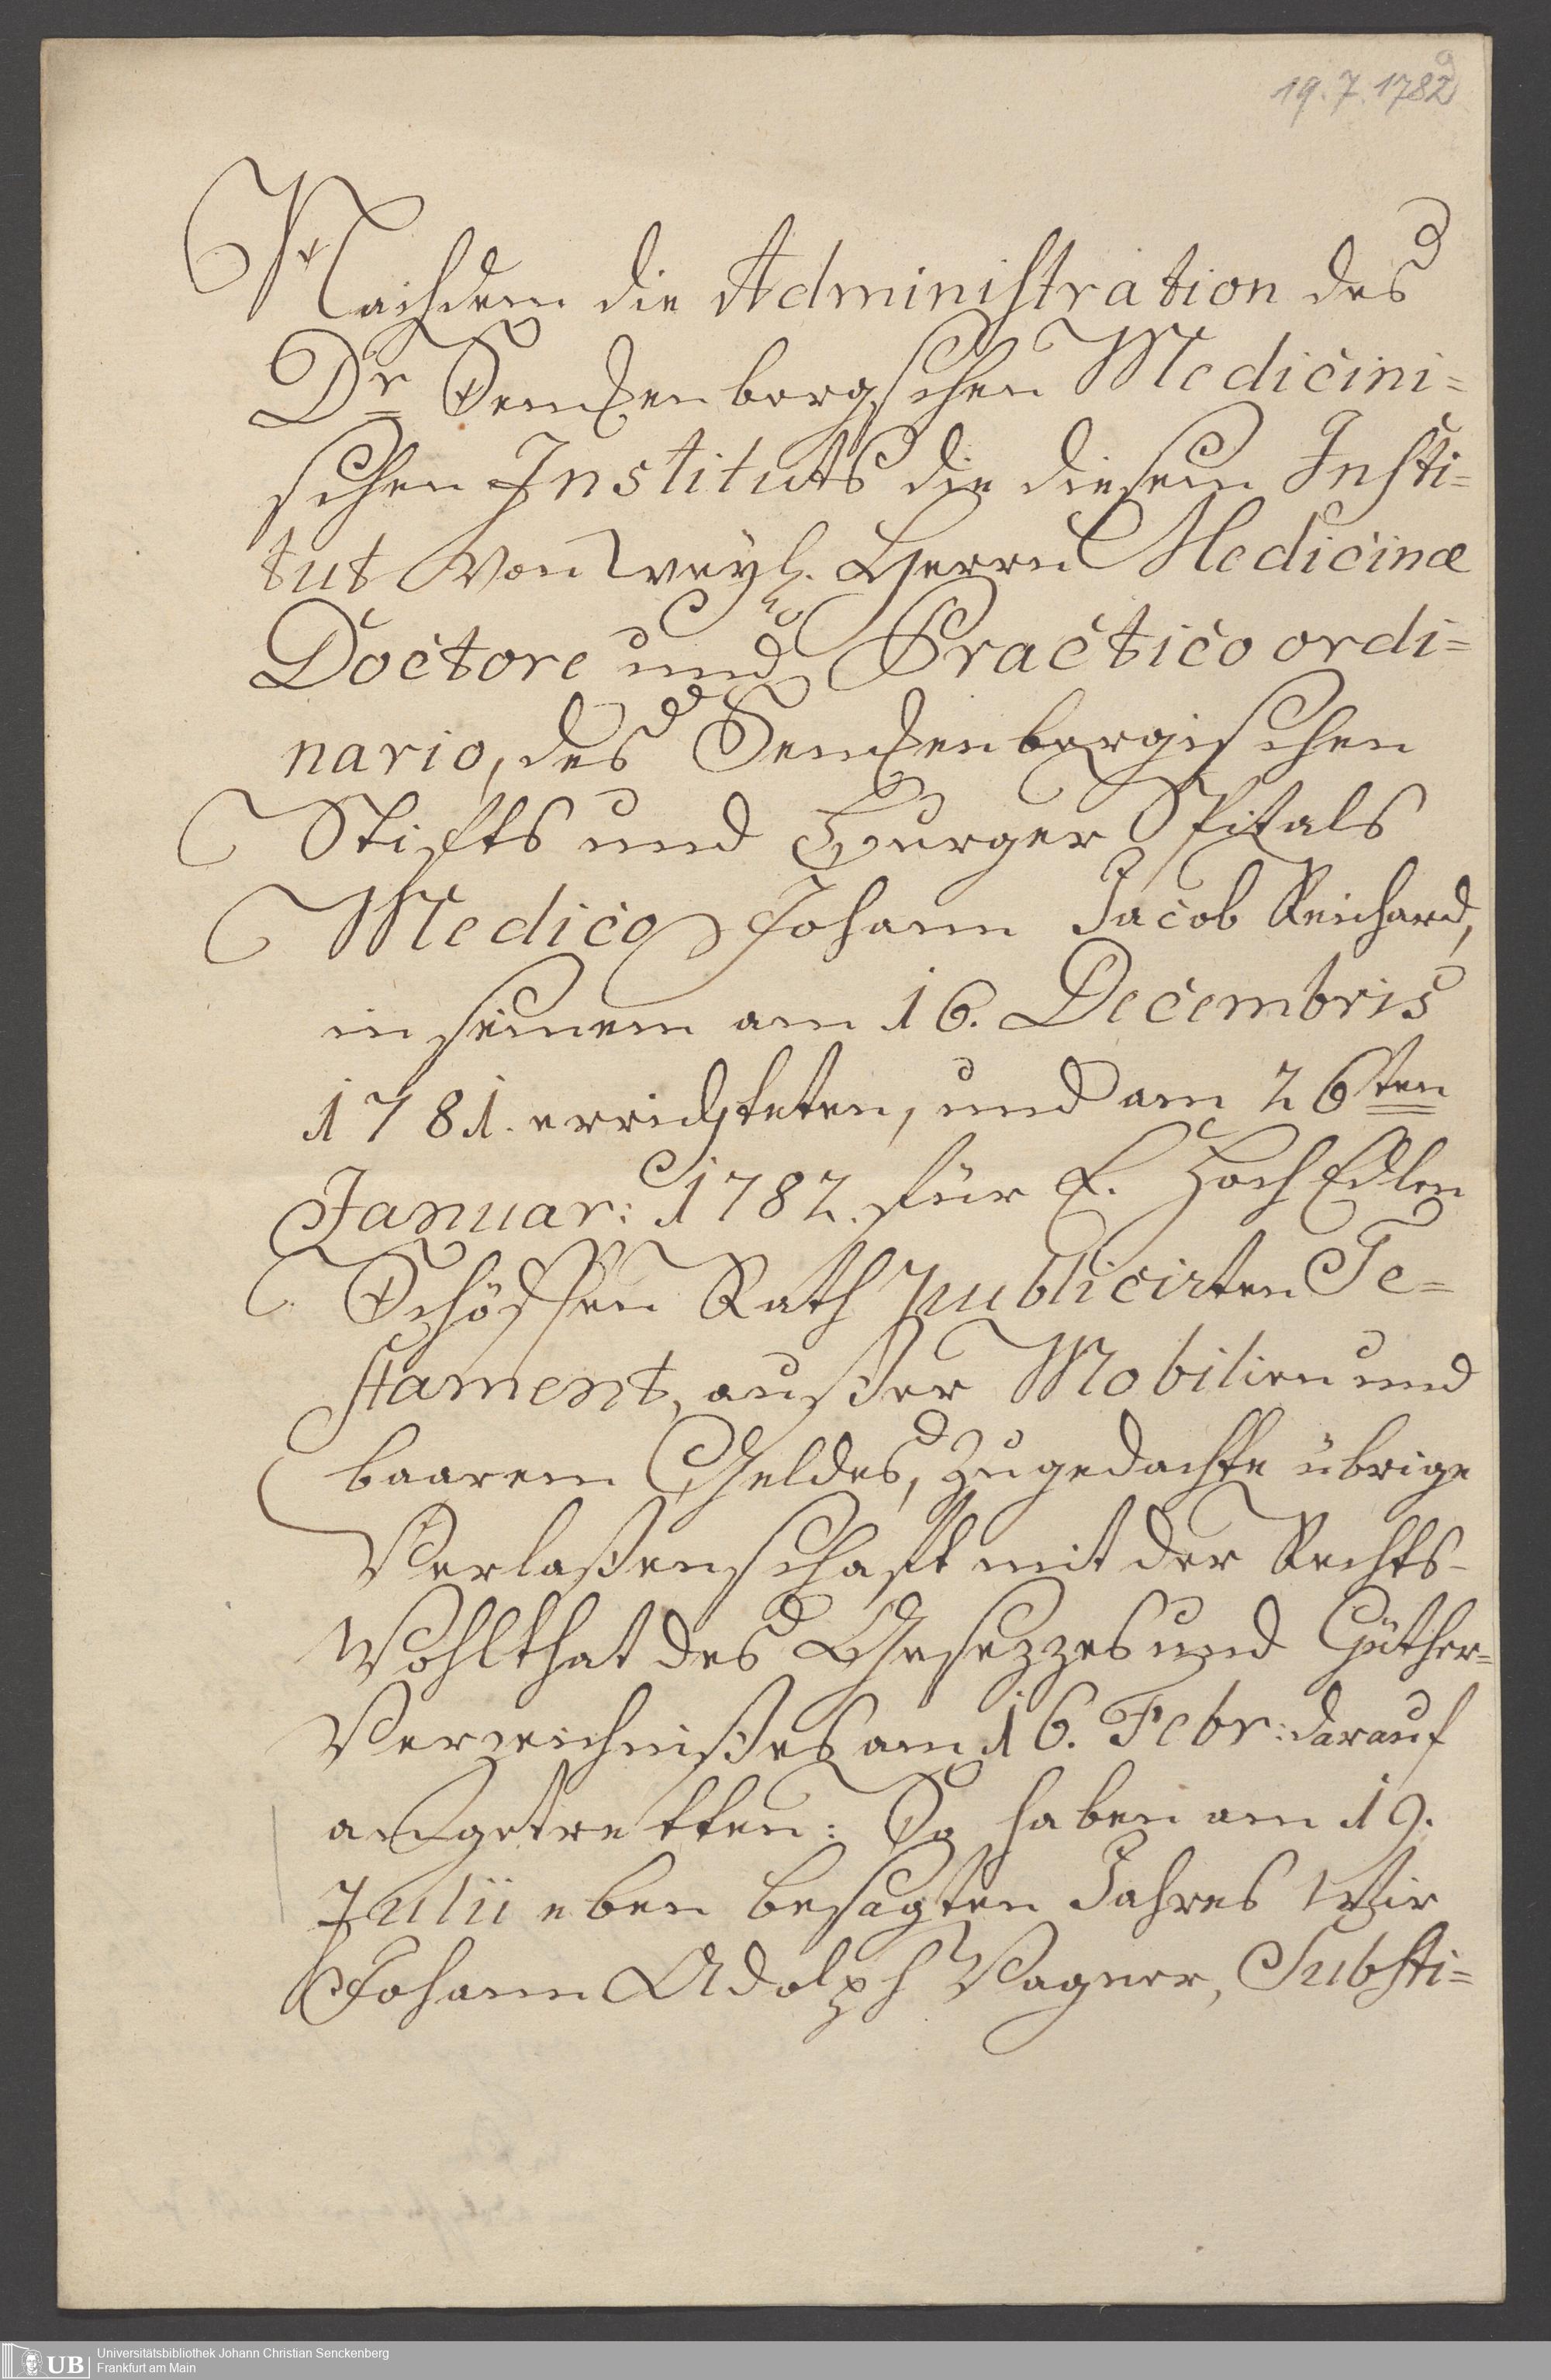 19.7.1782
9
Nachdem die Administration des
Dr Senckenbergschen Medicini=
schen Instituts die diesem Insti=
tut von weyl. Herrn Medicinæ
Doctore und Practico ordi=
nario, des Senckenbergischen
Stifts und Burger Spitals
Medico Johann Jacob Reichard,
in seinem am 16. Decembris
1781. errichteten, und am 26ten
Januar: 1782. für E. HochEdlen
Schöffen Rath publicirten Te=
stament, außer Mobilien und
baarem Geldes, zugedachte übrige
Verlaßenschaft mit der Rechts-
Wohlthat des Gesezzes und Güther=
Verzeichnißes am 16. Febr: darauf
angetretten: So haben am 19.
Julii eben besagten Jahres Wir
Johann Adolph Wagner, Substi=
UB
Universitätsbibliothek Johann Christian Senckenberg
Frankfurt am Main